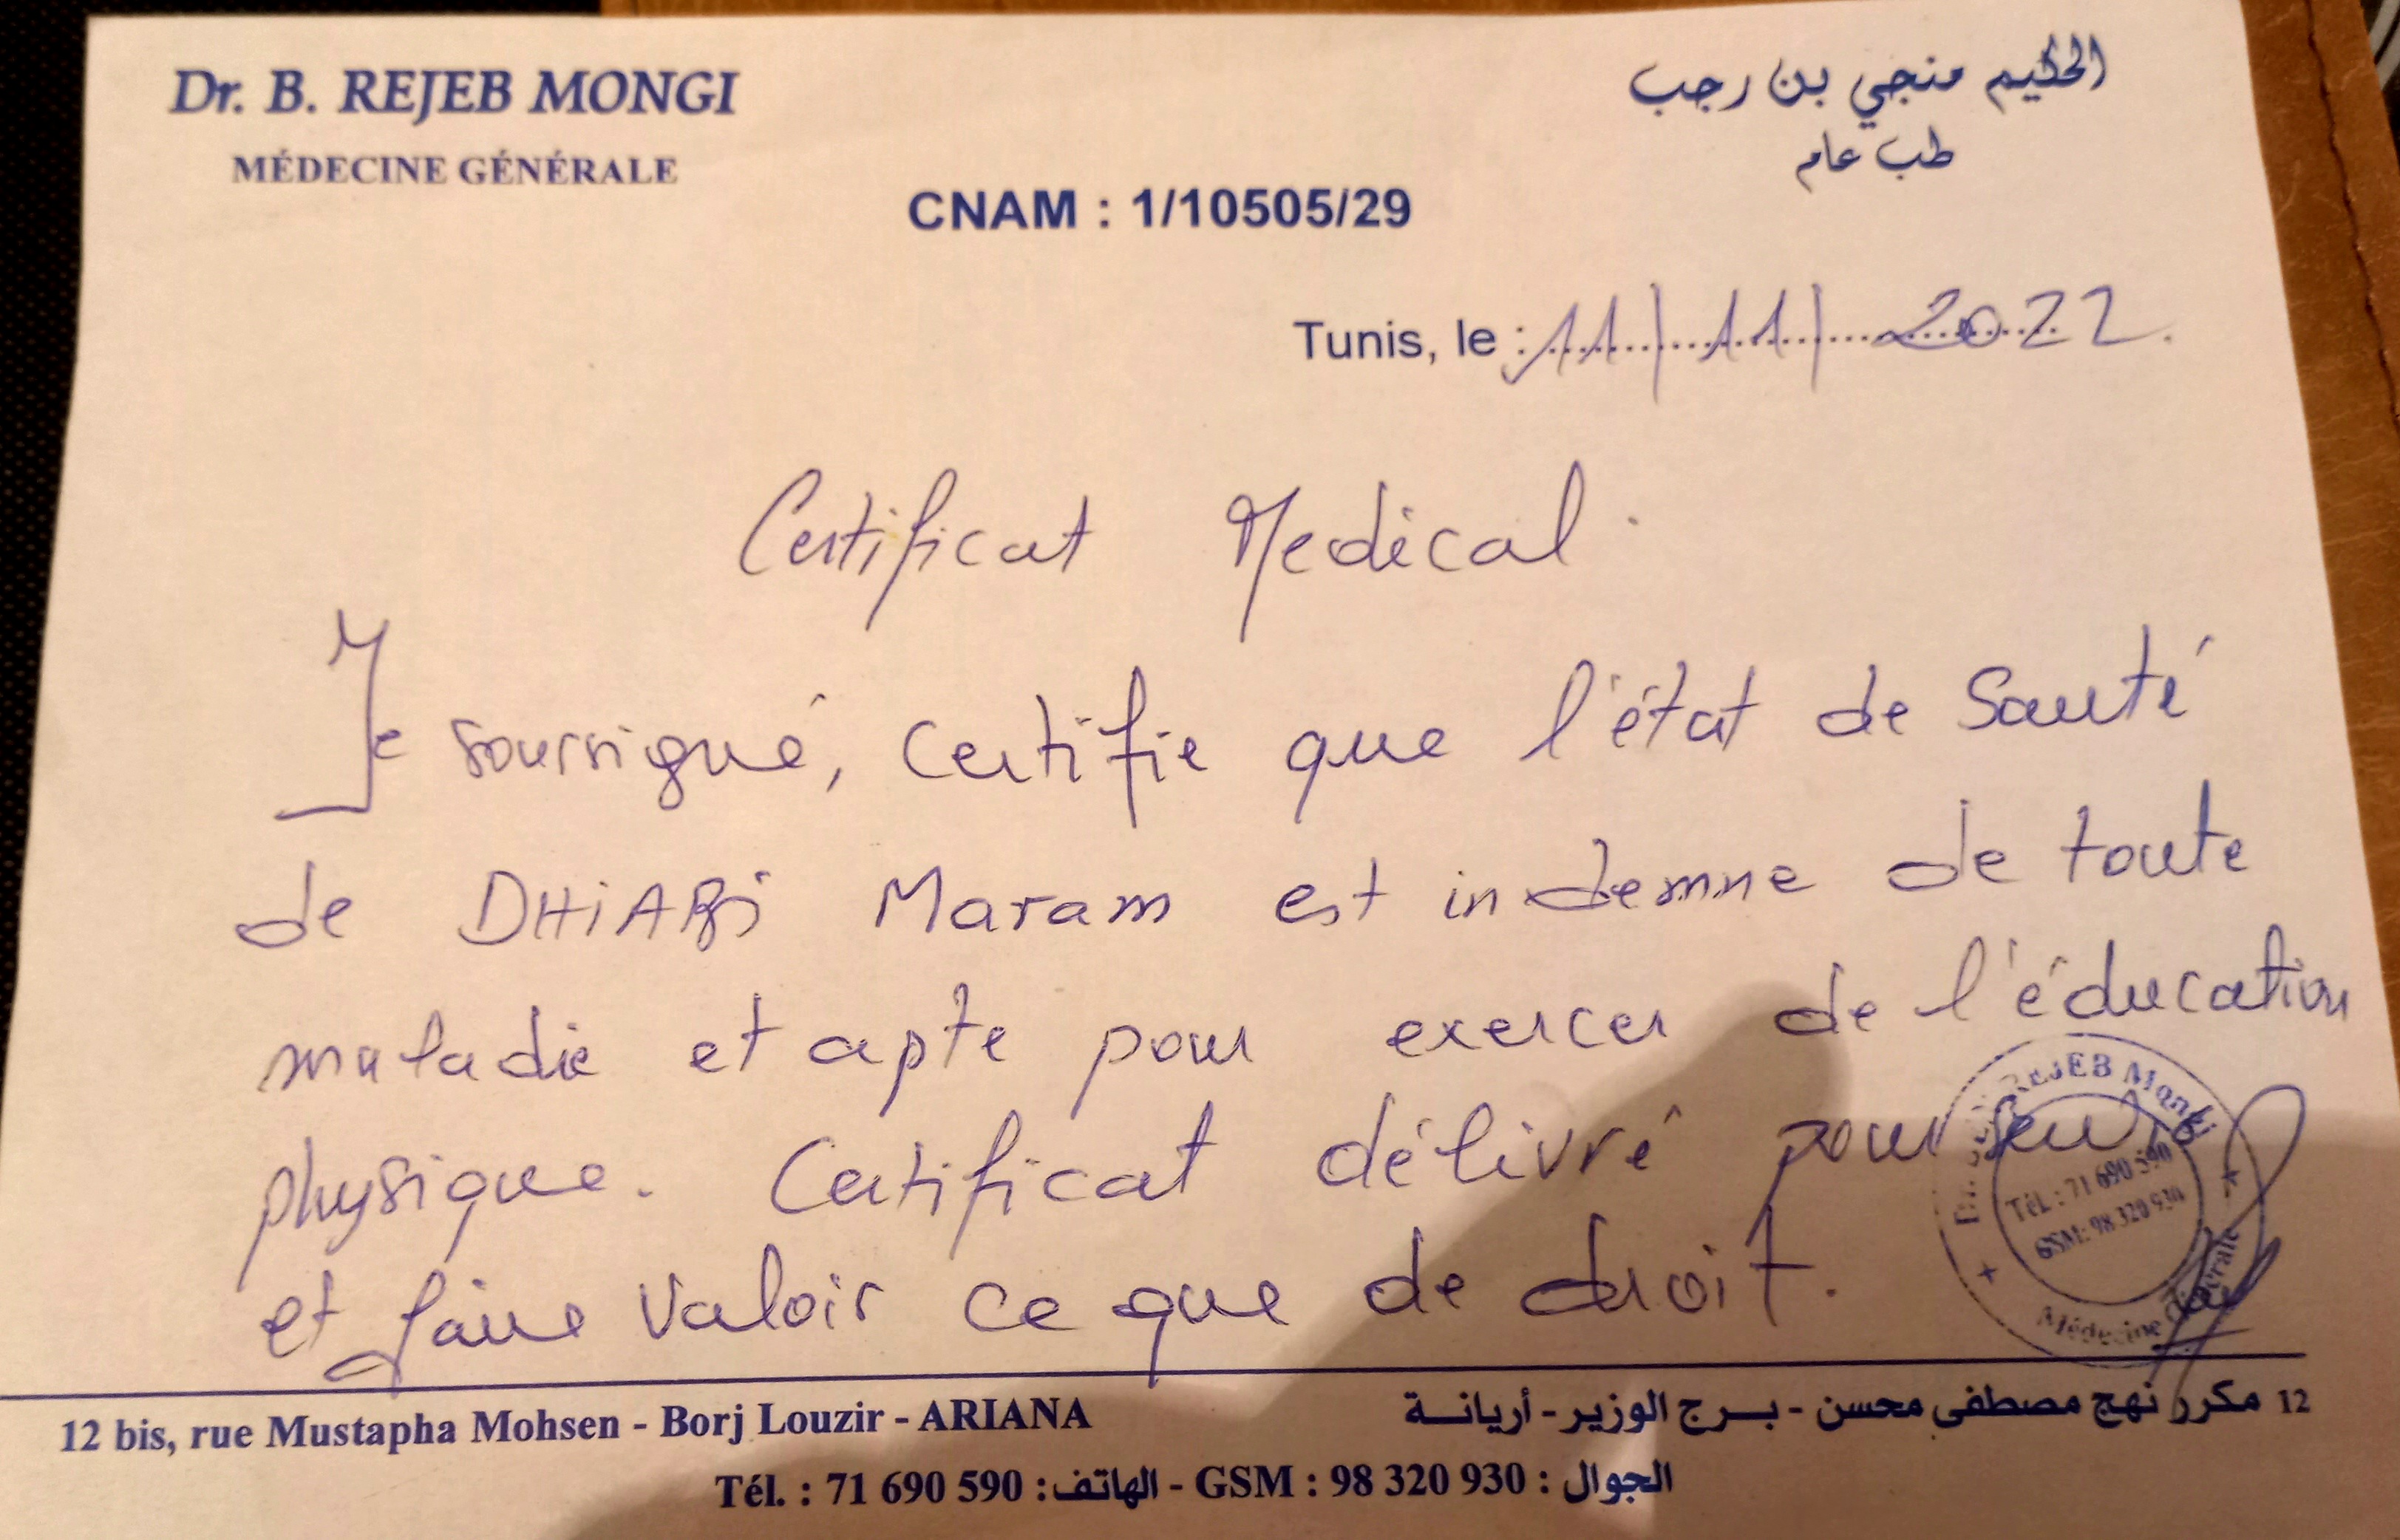 Dr. B. REJEB MONGI
MÉDECINE GÉNÉRALE
الحكيم منجي بن رجب
طب عام
CNAM : 1/10505/29
Tunis, le : 11/11/2022.
Certificat Medical.
Je soussigné, certifie que l'état de Santé
de DHIABI Maram est indemne de toute
maladie et apte pour exercer de l'éducation
physique. Certificat délivré pour
et faire valoir ce que de droit.
REJEB Mongi
Tél : 71 690 590
GSM: 98 320 930
Médecine Générale
12 bis, rue Mustapha Mohsen - Borj Louzir - ARIANA
12 مكرر نهج مصطفى محسن - بـــرج الوزير - أريانـــة
Tél. : 71 690 590 : الهاتف - GSM : 98 320 930 : الجوال